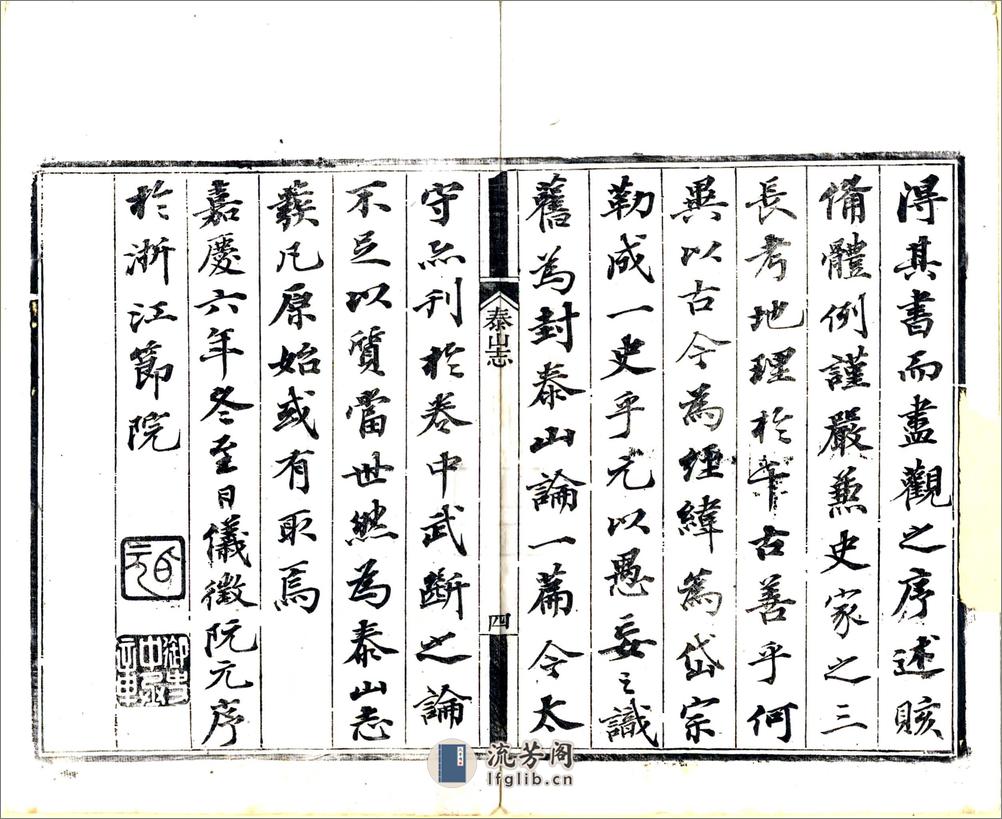 得其書而盡觀之序述賅
備體例謹嚴兼史家之三
長考地理於千古善乎何
異以古今為經緯為岱宗
勒成一史乎元以愚妄之識
舊為封泰山論一篇今太
泰山志
四
守亦刊於卷中武斷之論
不足以質當世然為泰山志
發凡原始或有取焉
嘉慶六年冬至日儀徵阮元序
於浙江節院
流芳阁
lfglib.cn